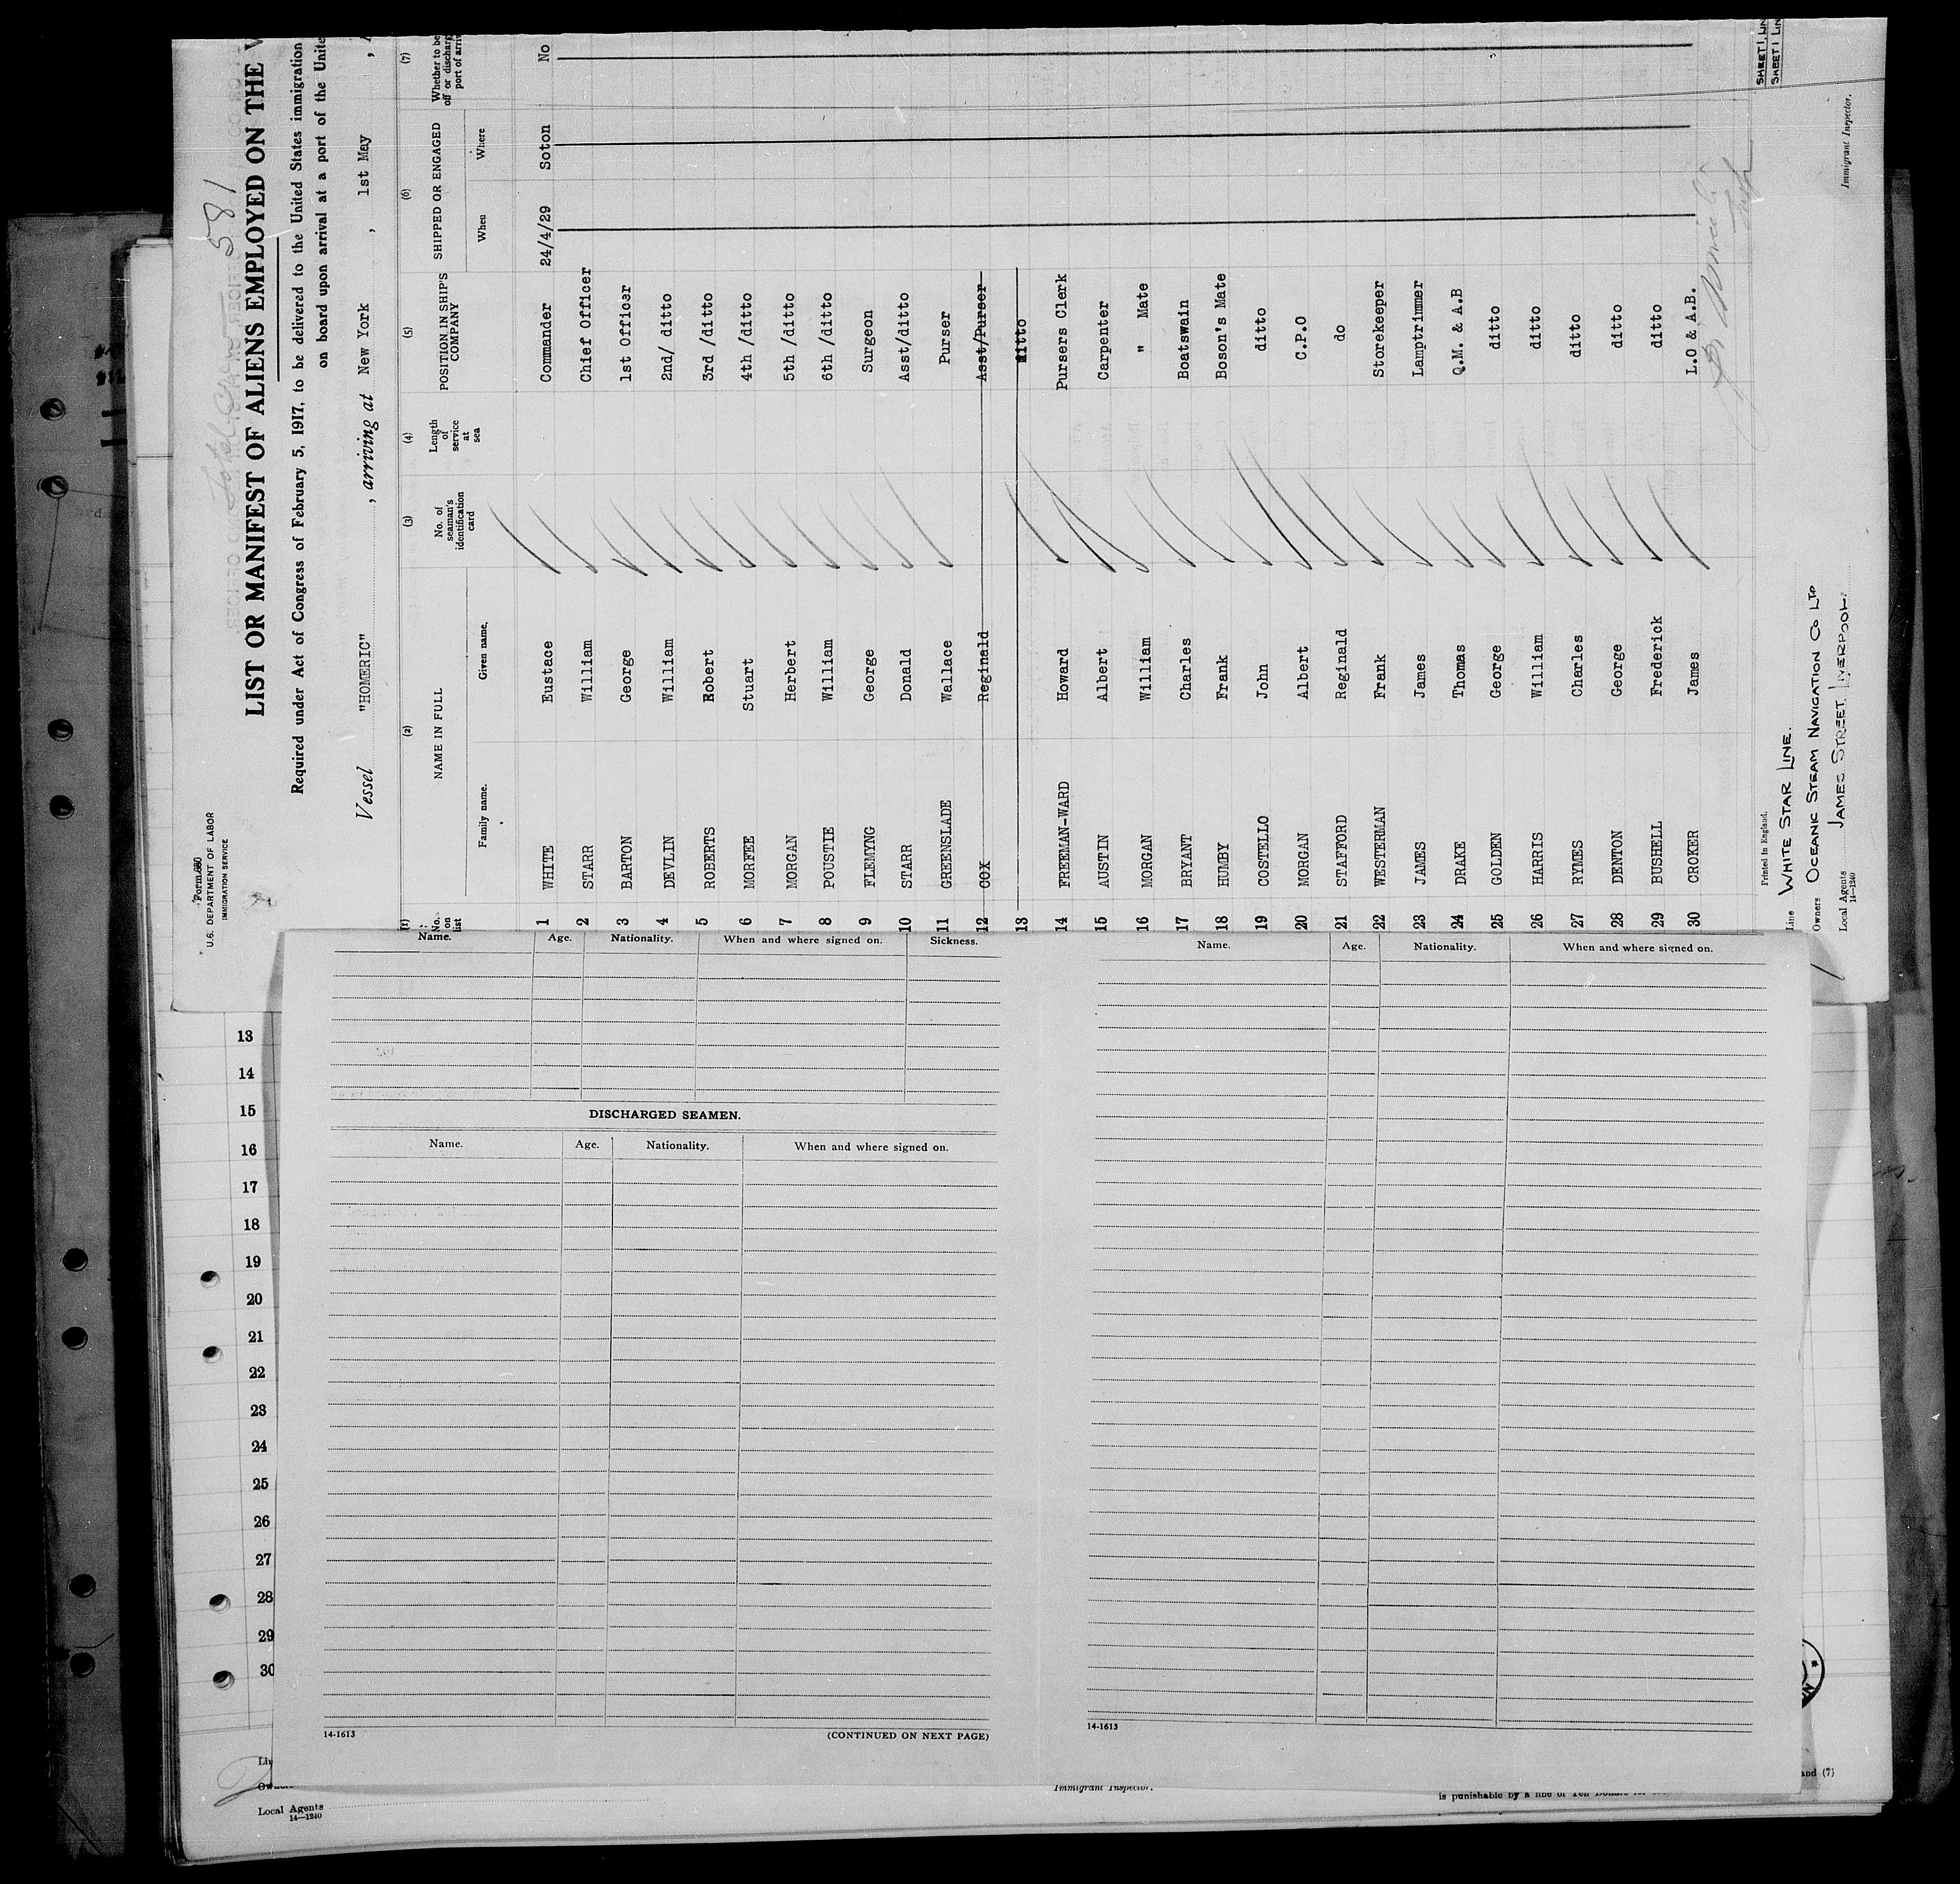 Form 680
U. S. DEPARTMENT OF LABOR
IMMIGRATION SERVICE
581
LIST OR MANIFEST OF ALIENS EMPLOYED ON THE
Required under Act of Congress of February 5, 1917, to be delivered to the United States immigration
on board upon arrival at a port of the Unite
Vessel "HOMERIC", arriving at New York, 1st May,
(1) (2) (3) (4) (5) (6) (7)
No. on list NAME IN FULL No. of seaman's identification card Length of service at sea POSITION IN SHIP'S COMPANY SHIPPED OR ENGAGED Whether to be off or discharg port of arriv
Family name. Given name. When Where
1 WHITE Eustace Commander 24/4/29 Soton No
2 STARR William Chief Officer
3 BARTON George 1st Officer
4 DEVLIN William 2nd/ ditto
5 ROBERTS Robert 3rd /ditto
6 MORFEE Stuart 4th /ditto
7 MORGAN Herbert 5th /ditto
8 POUSTIE William 6th /ditto
9 FLEMYNG George Surgeon
10 STARR Donald Asst/ditto
11 GREENSLADE Wallace Purser
12 COX Reginald Asst/Purser
13 ditto
14 FREEMAN-WARD Howard Pursers Clerk
15 AUSTIN Albert Carpenter
16 MORGAN William " Mate
17 BRYANT Charles Boatswain
18 HUMBY Frank Boson's Mate
19 COSTELLO John ditto
20 MORGAN Albert C.P.O
21 STAFFORD Reginald do
22 WESTERMAN Frank Storekeeper
23 JAMES James Lamptrimmer
24 DRAKE Thomas Q.M. & A.B
25 GOLDEN George ditto
26 HARRIS William ditto
27 RYMES Charles ditto
28 DENTON George ditto
29 BUSHELL Frederick ditto
30 CROKER James L.O & A.B.
Printed in England.
Line WHITE STAR LINE.
Owners OCEANIC STEAM NAVIGATION CO LTD
Local Agents JAMES STREET, LIVERPOOL.
14—1240
Immigrant Inspector.
SHEET 1. LIN
SHEET 1 LIN
Name. Age. Nationality. When and where signed on. Sickness.
DISCHARGED SEAMEN.
Name. Age. Nationality. When and where signed on.
14-1613
(CONTINUED ON NEXT PAGE)
Name. Age. Nationality. When and where signed on.
14-1613
13
14
15
16
17
18
19
20
21
22
23
24
25
26
27
28
29
30
2
Local Agents
14—1240
Immigrant Inspector.
and (7)
is punishable by a fine of Ten Dollars